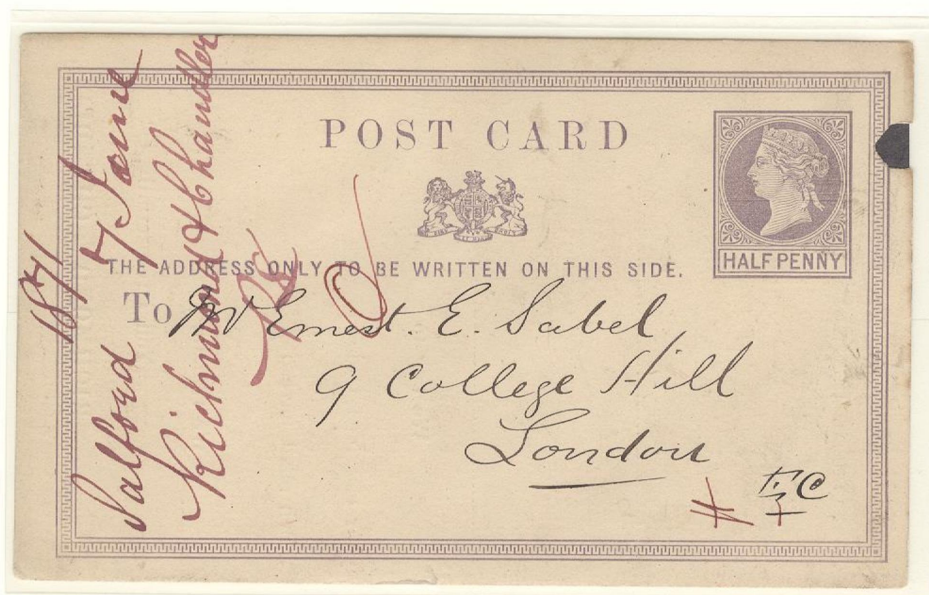 POST CARD
HALFPENNY
THE ADDRESS ONLY TO BE WRITTEN ON THIS SIDE.
To Mr Ernest. E. Sabel
9 College Hill
London
EC
Salford 7 June
Richmond & Chandler